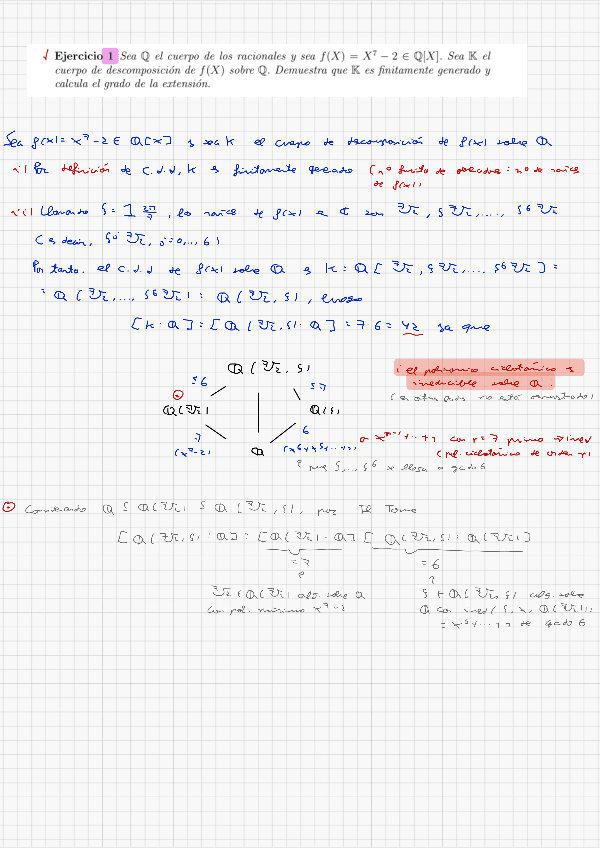 √ Ejercicio 1 Sea ℚ el cuerpo de los racionales y sea f(X) = X⁷ − 2 ∈ ℚ[X]. Sea 𝕂 el
cuerpo de descomposición de f(X) sobre ℚ. Demuestra que 𝕂 es finitamente generado y
calcula el grado de la extensión.
Sea f(x) = x⁷-2 ∈ ℚ[x] y sea K el cuerpo de descomposición de f(x) sobre ℚ
i) Por definición de c.d.d, K es finitamente generado (nº finito de : nº de raíces
de f(x))
ii) Llamando ξ = 1 2π/7, las raíces de f(x) en ℂ son ⁷√2, ξ ⁷√2, ..., ξ⁶ ⁷√2
(es decir, ξʲ ⁷√2, j=0,...,6)
Por tanto, el c.d.d de f(x) sobre ℚ es K = ℚ[⁷√2, ξ ⁷√2, ... ξ⁶ ⁷√2] =
= ℚ(⁷√2, ..., ξ⁶ ⁷√2) = ℚ(⁷√2, ξ), luego
[K:ℚ] = [ℚ(⁷√2, ξ):ℚ] = 7·6 = 42 ya que
ℚ(⁷√2, ξ)
¡el polinomio ciclotómico es
irreducible sobre ℚ.
≤6
≤7
(en otra no está demostrado)
ℚ(⁷√2)
ℚ(ξ)
7
6
(x⁷-2)
ℚ
(x⁶+x⁵+...+1)
o xᵖ⁻¹+...+1 con p=7 primo → irred
(pol. ciclotómico de orden 7)
? que ξ,...,ξ⁶ x llega a grado 6
⊙ Considerando ℚ ⊆ ℚ(⁷√2) ⊆ ℚ(⁷√2, ξ), por Tª Torre
[ℚ(⁷√2, ξ):ℚ] = [ℚ(⁷√2):ℚ] [ℚ(⁷√2, ξ):ℚ(⁷√2)]
=7
=6
⁷√2 ∈ ℚ(⁷√2) alg. sobre ℚ
con pol. mínimo x⁷-2
ξ ∈ ℚ(⁷√2, ξ) alg. sobre
ℚ con irred(ξ, x, ℚ(⁷√2)) =
= x⁶+...+1 de grado 6